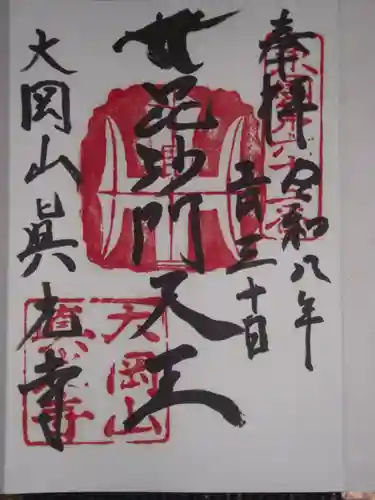 奉拝 令和八年
三月三十日
毘沙門天王
大岡山眞光寺
大岡山
眞光寺